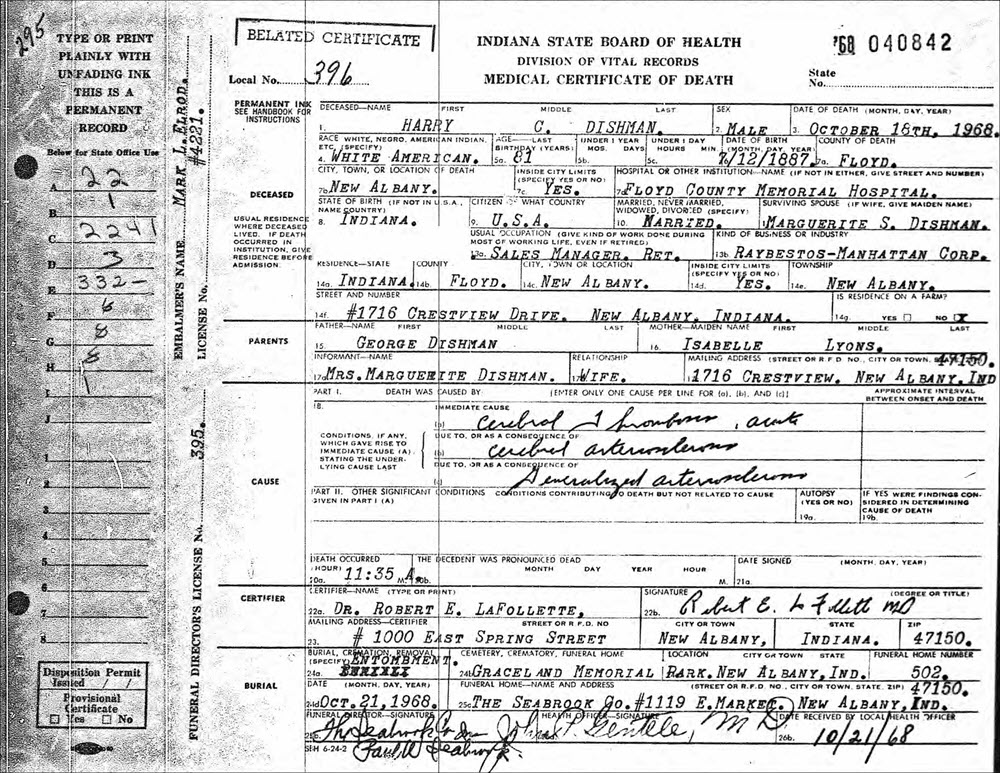 295
TYPE OR PRINT
PLAINLY WITH
UNFADING INK
THIS IS A
PERMANENT
RECORD
Below for State Office Use
A. 22
B. 1
C. 2241
D. 3
E. 332-
F. 6
G. 8
H. 8
1
J.
1
2
3
4
5
6
7
8
Disposition Permit
Issued / /
Provisional
Certificate
Yes No
EMBALMER'S NAME. MARK L. ELROD. LICENSE No. #4221.
FUNERAL DIRECTOR'S LICENSE No. 395.
BELATED CERTIFICATE
Local No. 396
INDIANA STATE BOARD OF HEALTH
DIVISION OF VITAL RECORDS
MEDICAL CERTIFICATE OF DEATH
'68 040842
State
No.
PERMANENT INK
SEE HANDBOOK FOR
INSTRUCTIONS
DECEASED—NAME FIRST MIDDLE LAST SEX DATE OF DEATH (MONTH, DAY, YEAR)
1. HARRY C. DISHMAN. 2. MALE 3. OCTOBER 18TH, 1968.
RACE WHITE, NEGRO, AMERICAN INDIAN, ETC. (SPECIFY) AGE—LAST BIRTHDAY (YEARS) UNDER 1 YEAR MOS. DAYS UNDER 1 DAY HOURS MIN. DATE OF BIRTH (MONTH, DAY, YEAR) COUNTY OF DEATH
4. WHITE AMERICAN. 5a. 81 5b. 5c. 7/12/1887. 7a. FLOYD.
DECEASED
CITY, TOWN, OR LOCATION OF DEATH INSIDE CITY LIMITS (SPECIFY YES OR NO) HOSPITAL OR OTHER INSTITUTION—NAME (IF NOT IN EITHER, GIVE STREET AND NUMBER)
7b. NEW ALBANY. 7c. YES. 7d. FLOYD COUNTY MEMORIAL HOSPITAL.
USUAL RESIDENCE
WHERE DECEASED
LIVED. IF DEATH
OCCURRED IN
INSTITUTION, GIVE
RESIDENCE BEFORE
ADMISSION.
STATE OF BIRTH (IF NOT IN U.S.A., NAME COUNTRY) CITIZEN OF WHAT COUNTRY MARRIED, NEVER MARRIED, WIDOWED, DIVORCED (SPECIFY) SURVIVING SPOUSE (IF WIFE, GIVE MAIDEN NAME)
8. INDIANA. 9. U.S.A. 10. MARRIED. MARGUERITE S. DISHMAN.
USUAL OCCUPATION (GIVE KIND OF WORK DONE DURING MOST OF WORKING LIFE, EVEN IF RETIRED) KIND OF BUSINESS OR INDUSTRY
13a. SALES MANAGER. RET. 13b. RAYBESTOS-MANHATTAN CORP.
RESIDENCE—STATE COUNTY CITY, TOWN OR LOCATION INSIDE CITY LIMITS (SPECIFY YES OR NO) TOWNSHIP
14a. INDIANA. 14b. FLOYD. 14c. NEW ALBANY. 14d. YES. 14e. NEW ALBANY.
STREET AND NUMBER IS RESIDENCE ON A FARM?
14f. #1716 CRESTVIEW DRIVE. NEW ALBANY. INDIANA. 14g. YES NO X
PARENTS
FATHER—NAME FIRST MIDDLE LAST MOTHER—MAIDEN NAME FIRST MIDDLE LAST
15. GEORGE DISHMAN 16. ISABELLE LYONS.
INFORMANT—NAME RELATIONSHIP MAILING ADDRESS (STREET OR R.F.D. NO., CITY OR TOWN, 47150.
17a. MRS. MARGUERITE DISHMAN. WIFE. 1716 CRESTVIEW. NEW ALBANY. IND
PART I. DEATH WAS CAUSED BY: [ENTER ONLY ONE CAUSE PER LINE FOR (a), (b), AND (c)] APPROXIMATE INTERVAL BETWEEN ONSET AND DEATH
CAUSE
18. IMMEDIATE CAUSE
(a) cerebral Thrombosis, acute
CONDITIONS, IF ANY,
WHICH GAVE RISE TO
IMMEDIATE CAUSE (A)
STATING THE UNDER-
LYING CAUSE LAST
DUE TO, OR AS A CONSEQUENCE OF
(b) cerebral arteriosclerosis
DUE TO, OR AS A CONSEQUENCE OF
(c) Generalized arteriosclerosis
PART II. OTHER SIGNIFICANT CONDITIONS CONDITIONS CONTRIBUTING TO DEATH BUT NOT RELATED TO CAUSE GIVEN IN PART I (A) AUTOPSY (YES OR NO) IF YES WERE FINDINGS CONSIDERED IN DETERMINING CAUSE OF DEATH
19a. 19b.
DEATH OCCURRED (HOUR) THE DECEDENT WAS PRONOUNCED DEAD MONTH DAY YEAR HOUR DATE SIGNED (MONTH, DAY, YEAR)
20a. 11:35 A.M. 20b. M. 21a.
CERTIFIER
CERTIFIER—NAME (TYPE OR PRINT) SIGNATURE (DEGREE OR TITLE)
22a. DR. ROBERT E. LAFOLLETTE. 22b. Robert E. LaFollette MD
MAILING ADDRESS—CERTIFIER STREET OR R.F.D. NO CITY OR TOWN STATE ZIP
23. # 1000 EAST SPRING STREET NEW ALBANY, INDIANA. 47150.
BURIAL
BURIAL, CREMATION, REMOVAL (SPECIFY) CEMETERY, CREMATORY, FUNERAL HOME LOCATION CITY OR TOWN STATE FUNERAL HOME NUMBER
24a. ENTOMBMENT. 24b. GRACELAND MEMORIAL PARK. NEW ALBANY, IND. 502.
DATE (MONTH, DAY, YEAR) FUNERAL HOME—NAME AND ADDRESS (STREET OR R.F.D. NO., CITY OR TOWN, STATE, ZIP) 47150.
24d. OCT. 21, 1968. 25c. THE SEABROOK CO. #1119 E. MARKET. NEW ALBANY, IND.
FUNERAL DIRECTOR—SIGNATURE HEALTH OFFICER—SIGNATURE DATE RECEIVED BY LOCAL HEALTH OFFICER
25b. The Seabrook Co John T. Gentile, MD 26b. 10/21/68
SBH 6-24-2 Paul W Seabrook Jr.